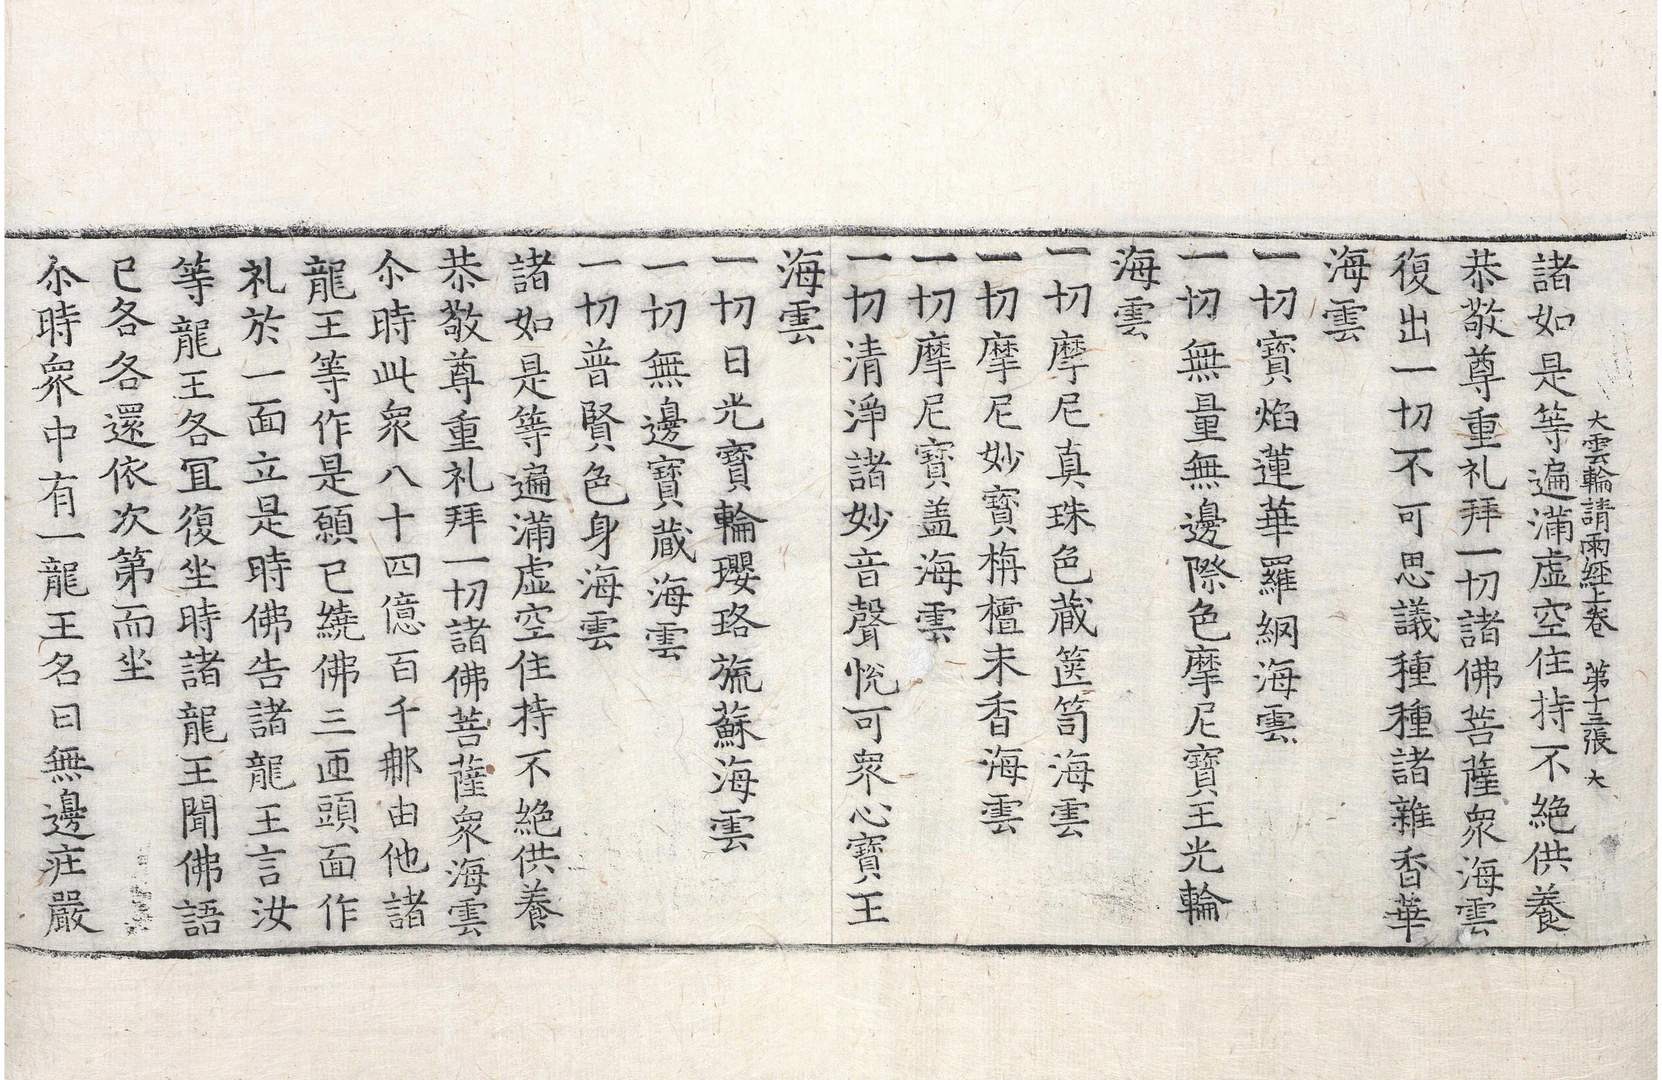 大雲輪請雨經上卷 第十三張 大
諸如是等遍滿虛空住持不絕供養
恭敬尊重礼拜一切諸佛菩薩衆海雲
復出一切不可思議種種諸雜香華
海雲
一切寶焰蓮華羅網海雲
一切無量無邊際色摩尼寶王光輪
海雲
一切摩尼真珠色藏篋笥海雲
一切摩尼妙寶栴檀末香海雲
一切摩尼寶盖海雲
一切清淨諸妙音聲悅可衆心寶王
海雲
一切日光寶輪瓔珞旒蘇海雲
一切無邊寶藏海雲
一切普賢色身海雲
諸如是等遍滿虛空住持不絕供養
恭敬尊重礼拜一切諸佛菩薩衆海雲
尒時此衆八十四億百千那由他諸
龍王等作是願已繞佛三迊頭面作
礼於一面立是時佛告諸龍王言汝
等龍王各冝復坐時諸龍王聞佛語
已各各還依次第而坐
尒時衆中有一龍王名曰無邊庄嚴